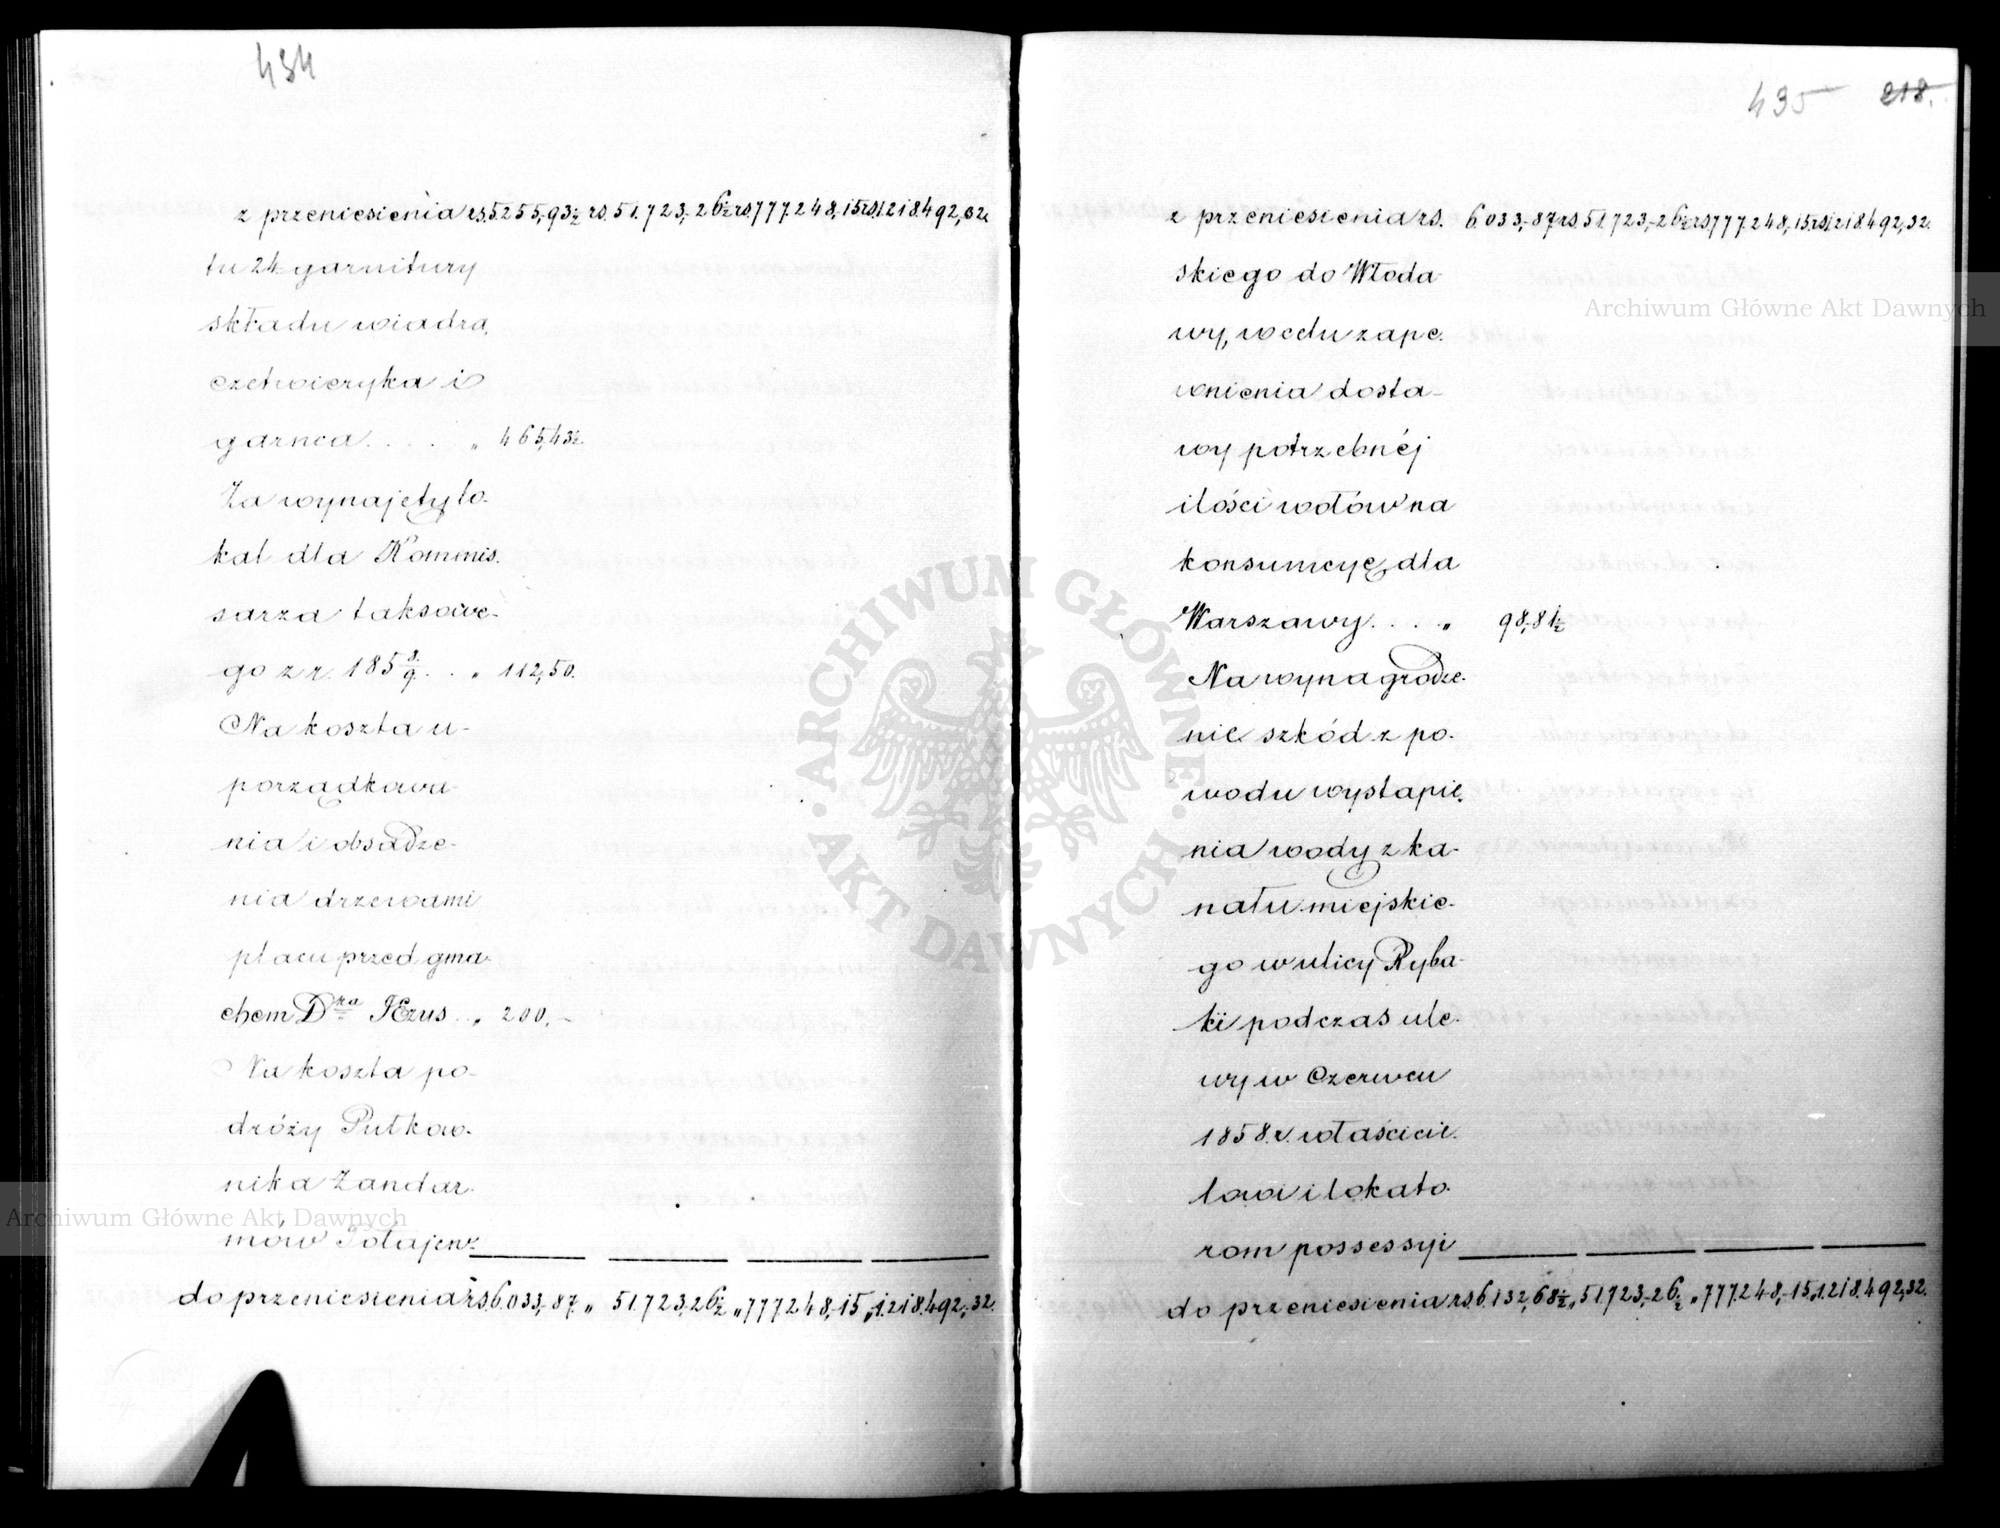 434
z przeniesienia rs. 5.255,93½ rs. 51.723,26½ rs. 777.248,15 rs. 1.218.492,32.
tu 24 garnitury
składu wiadra,
czetwieryka i
garnca . . . . „ 465,43½.
Za wynajęty lo-
kal dla Kommis-
sarza taksowe-
go z r. 1858/9. . . „ 112,50.
Na koszta u-
porządkowa-
nia i obsadze-
nia drzewami
placu przed gma-
chem Dtka Jezus . . „ 200.–
Na koszta po-
dróży Pułkow-
nika Żandar-
mów
do przeniesienia rs. 6.033,87. „ 51.723,26½ „ 777.248,15 „ 1.218.492,32.
435 218.
z przeniesienia rs. 6.033,87 rs. 51.723,26½ rs. 777.248,15 rs. 1.218.492,32.
skiego do Włoda-
wy, w celu zape-
wnienia dosta-
wy potrzebnéj
ilości wołów na
konsumcyę dla
Warszawy . . . . „ 98,81½
Na wynagrodze-
nie szkód z po-
wodu wystąpie-
nia wody z ka-
nału miejskie-
go w ulicy Ryba-
ki podczas ule-
wy w Czerwcu
1858 r. właścicie-
lowi i lokato-
rom possessyi
do przeniesienia rs. 6.132,68½ „ 51.723,26½ „ 777.248,15 „ 1.218.492,32.
Archiwum Główne Akt Dawnych
Archiwum Główne Akt Dawnych
ARCHIWUM GŁÓWNE · AKT DAWNYCH ·